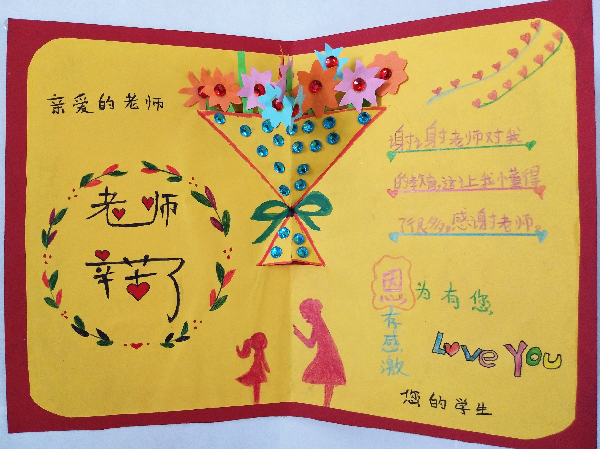 亲爱的老师
老师
辛苦了
谢谢老师对我
的教育,懂得
了很多。感谢老师
恩为有您
存感激
Love You
您的学生